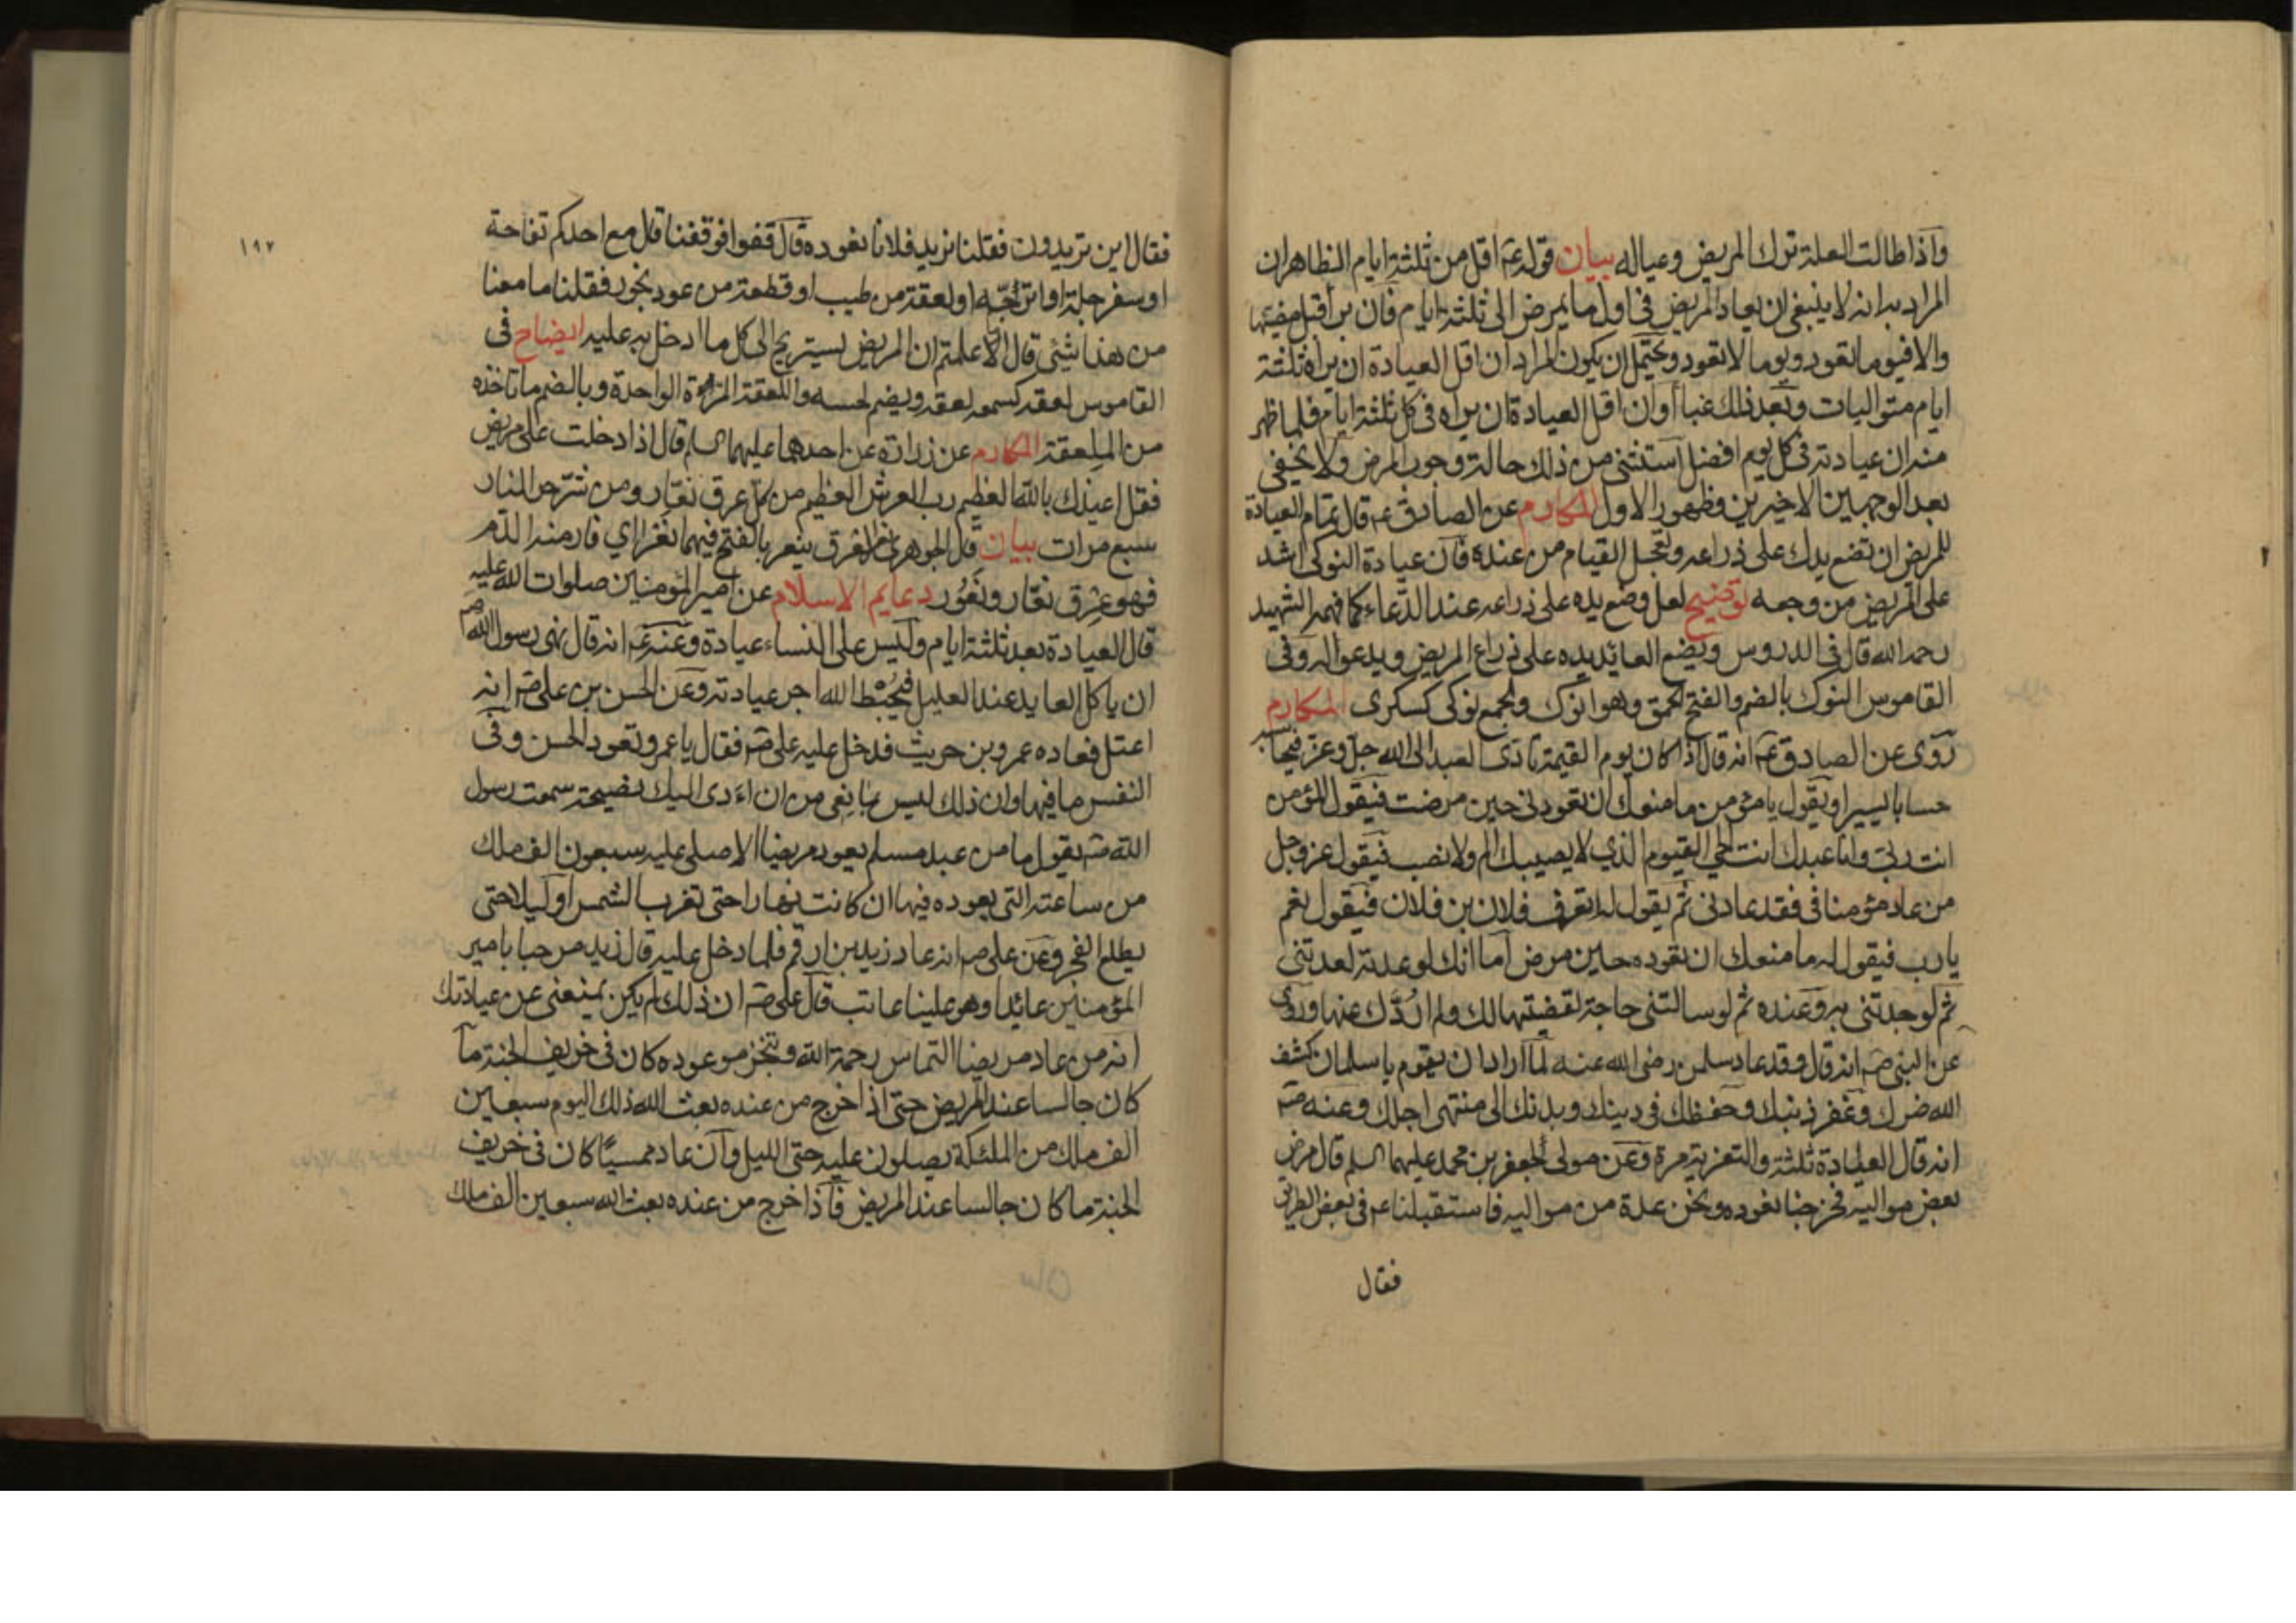 واذا طالت العلة ترك المريض وعياله بيان قوله عم اقل من ثلثة ايام الظاهران
المراد به انه لا ينبغي ان يعاد المريض في اول ما يمرض الى ثلثة ايام فان برأ قبل مضيها
والا فيوما تعود ويوما لا تعود ويحتمل ان يكون المراد ان اقل العيادة ان يراه ثلثة
ايام متواليات وبعد ذلك غبا أو ان اقل العيادة ان يراه في كل ثلثة ايام فلما ظهر
منه ان عيادته في كل يوم افضل استثنى من ذلك حالة وجوب المرض ولا يخفى
بعد الوجهين الاخيرين وظهور الاول المكارم عن الصادق عم قال تمام العيادة
للمريض ان تضع يدك على ذراعه وتعجل القيام من عنده فان عيادة النوكى اشد
على المريض من وجعه توضيح لعل وضع يده على ذراعه عند الدعاء كما فهمه الشهيد
رحمه الله قال في الدروس ويضع العائد يده على ذراع المريض ويدعو له وفي
القاموس النوك بالضم والفتح الحمق وهو انوك والجمع نوكى كسكرى المكارم
روى عن الصادق عم انه قال اذا كان يوم القيمة نادى العبد الى الله جل وعز فيحاسبه
حسابا يسيرا ويقول يا مؤمن ما منعك ان تعودني حين مرضت فيقول المؤمن
انت ربي وانا عبدك انت الحي القيوم الذي لا يصيبك الم ولا نصب فيقول عز وجل
من عاد مؤمنا في فقد عادني ثم يقول له اتعرف فلان بن فلان فيقول نعم
يا رب فيقول له ما منعك ان تعوده حين مرض أما انك لو عدته لعدتني
ثم لوجدتني به وعنده ثم لو سالتني حاجة لقضيتها لك ولم اردّك عنها وروى
عن النبي صم انه قال وقد عاد سلمن رضي الله عنه لما اراد ان يقوم يا سلمان كشف
الله ضرك وغفر ذنبك وحفظك في دينك وبدنك الى منتهى اجلك وعنه صم
انه قال العيادة ثلثة والتعزية مرة وعن مولى لجعفر بن محمد عليهما السلم قال مرض
بعض مواليه فخرجنا نعوده ونحن عدة من مواليه فاستقبلنا عم في بعض الطريق
فقال
١٩٧
فقال اين تريدون فقلنا نريد فلانا نعوده قال قفوا فوقفنا قال مع احدكم تفاحة
او سفرجلة او اترجّة او لعقة من طيب او قطعة من عود بخور فقلنا ما معنا
من هذا شئ قال الا علمتم ان المريض يستريح الى كل ما ادخل به عليه ايضاح في
القاموس لعقه كسمعه لعقه ويضم لحسه واللعقة المرة الواحدة وبالضم ما تاخذه
من الملعقة المكارم عن زرارة عن احدهما عليهما السلم قال اذا دخلت على مريض
فقل اعيذك بالله العظيم رب العرش العظيم من كل عرق نعّار ومن شرّ حر النار
سبع مرات بيان قال الجوهري نعر العرق ينعر بالفتح فيهما نعرا اي فار منه الدم
فهو عِرق نعّار ونَعُور دعايم الاسلام عن امير المؤمنين صلوات الله عليه
قال العيادة بعد ثلثة ايام وليس على النساء عيادة وعنه عم انه قال نهى رسول الله صم
ان ياكل العايد عند العليل فيُحْبِط الله اجر عيادته وعن الحسن بن علي صم انه
اعتل فعاده عمرو بن حريث فدخل عليه علي صم فقال يا عمرو تعود الحسن وفي
النفس ما فيها وان ذلك ليس بمانعي من ان اءدى اليك نصيحة سمعت رسول
الله صم يقول ما من عبد مسلم يعود مريضا الا صلى عليه سبعون الف ملك
من ساعته التي يعوده فيها ان كانت نهارا حتى تغرب الشمس او ليلا حتى
يطلع الفجر وعن علي صم انه عاد زيد بن ارقم فلما دخل عليه قال زيد مرحبا بامير
المؤمنين عائدا وهو علينا عاتب قال علي صم ان ذلك لم يكن يمنعني عن عيادتك
انه من عاد مريضا التماس رحمة الله وتنجز موعوده كان في خريف الجنة ما
كان جالسا عند المريض حتى اذا خرج من عنده بعث الله ذلك اليوم سبعين
الف ملك من الملئكة يصلون عليه حتى الليل وان عاد ممسيًا كان في خريف
الجنة ما كان جالسا عند المريض فاذا خرج من عنده بعث الله سبعين الف ملك